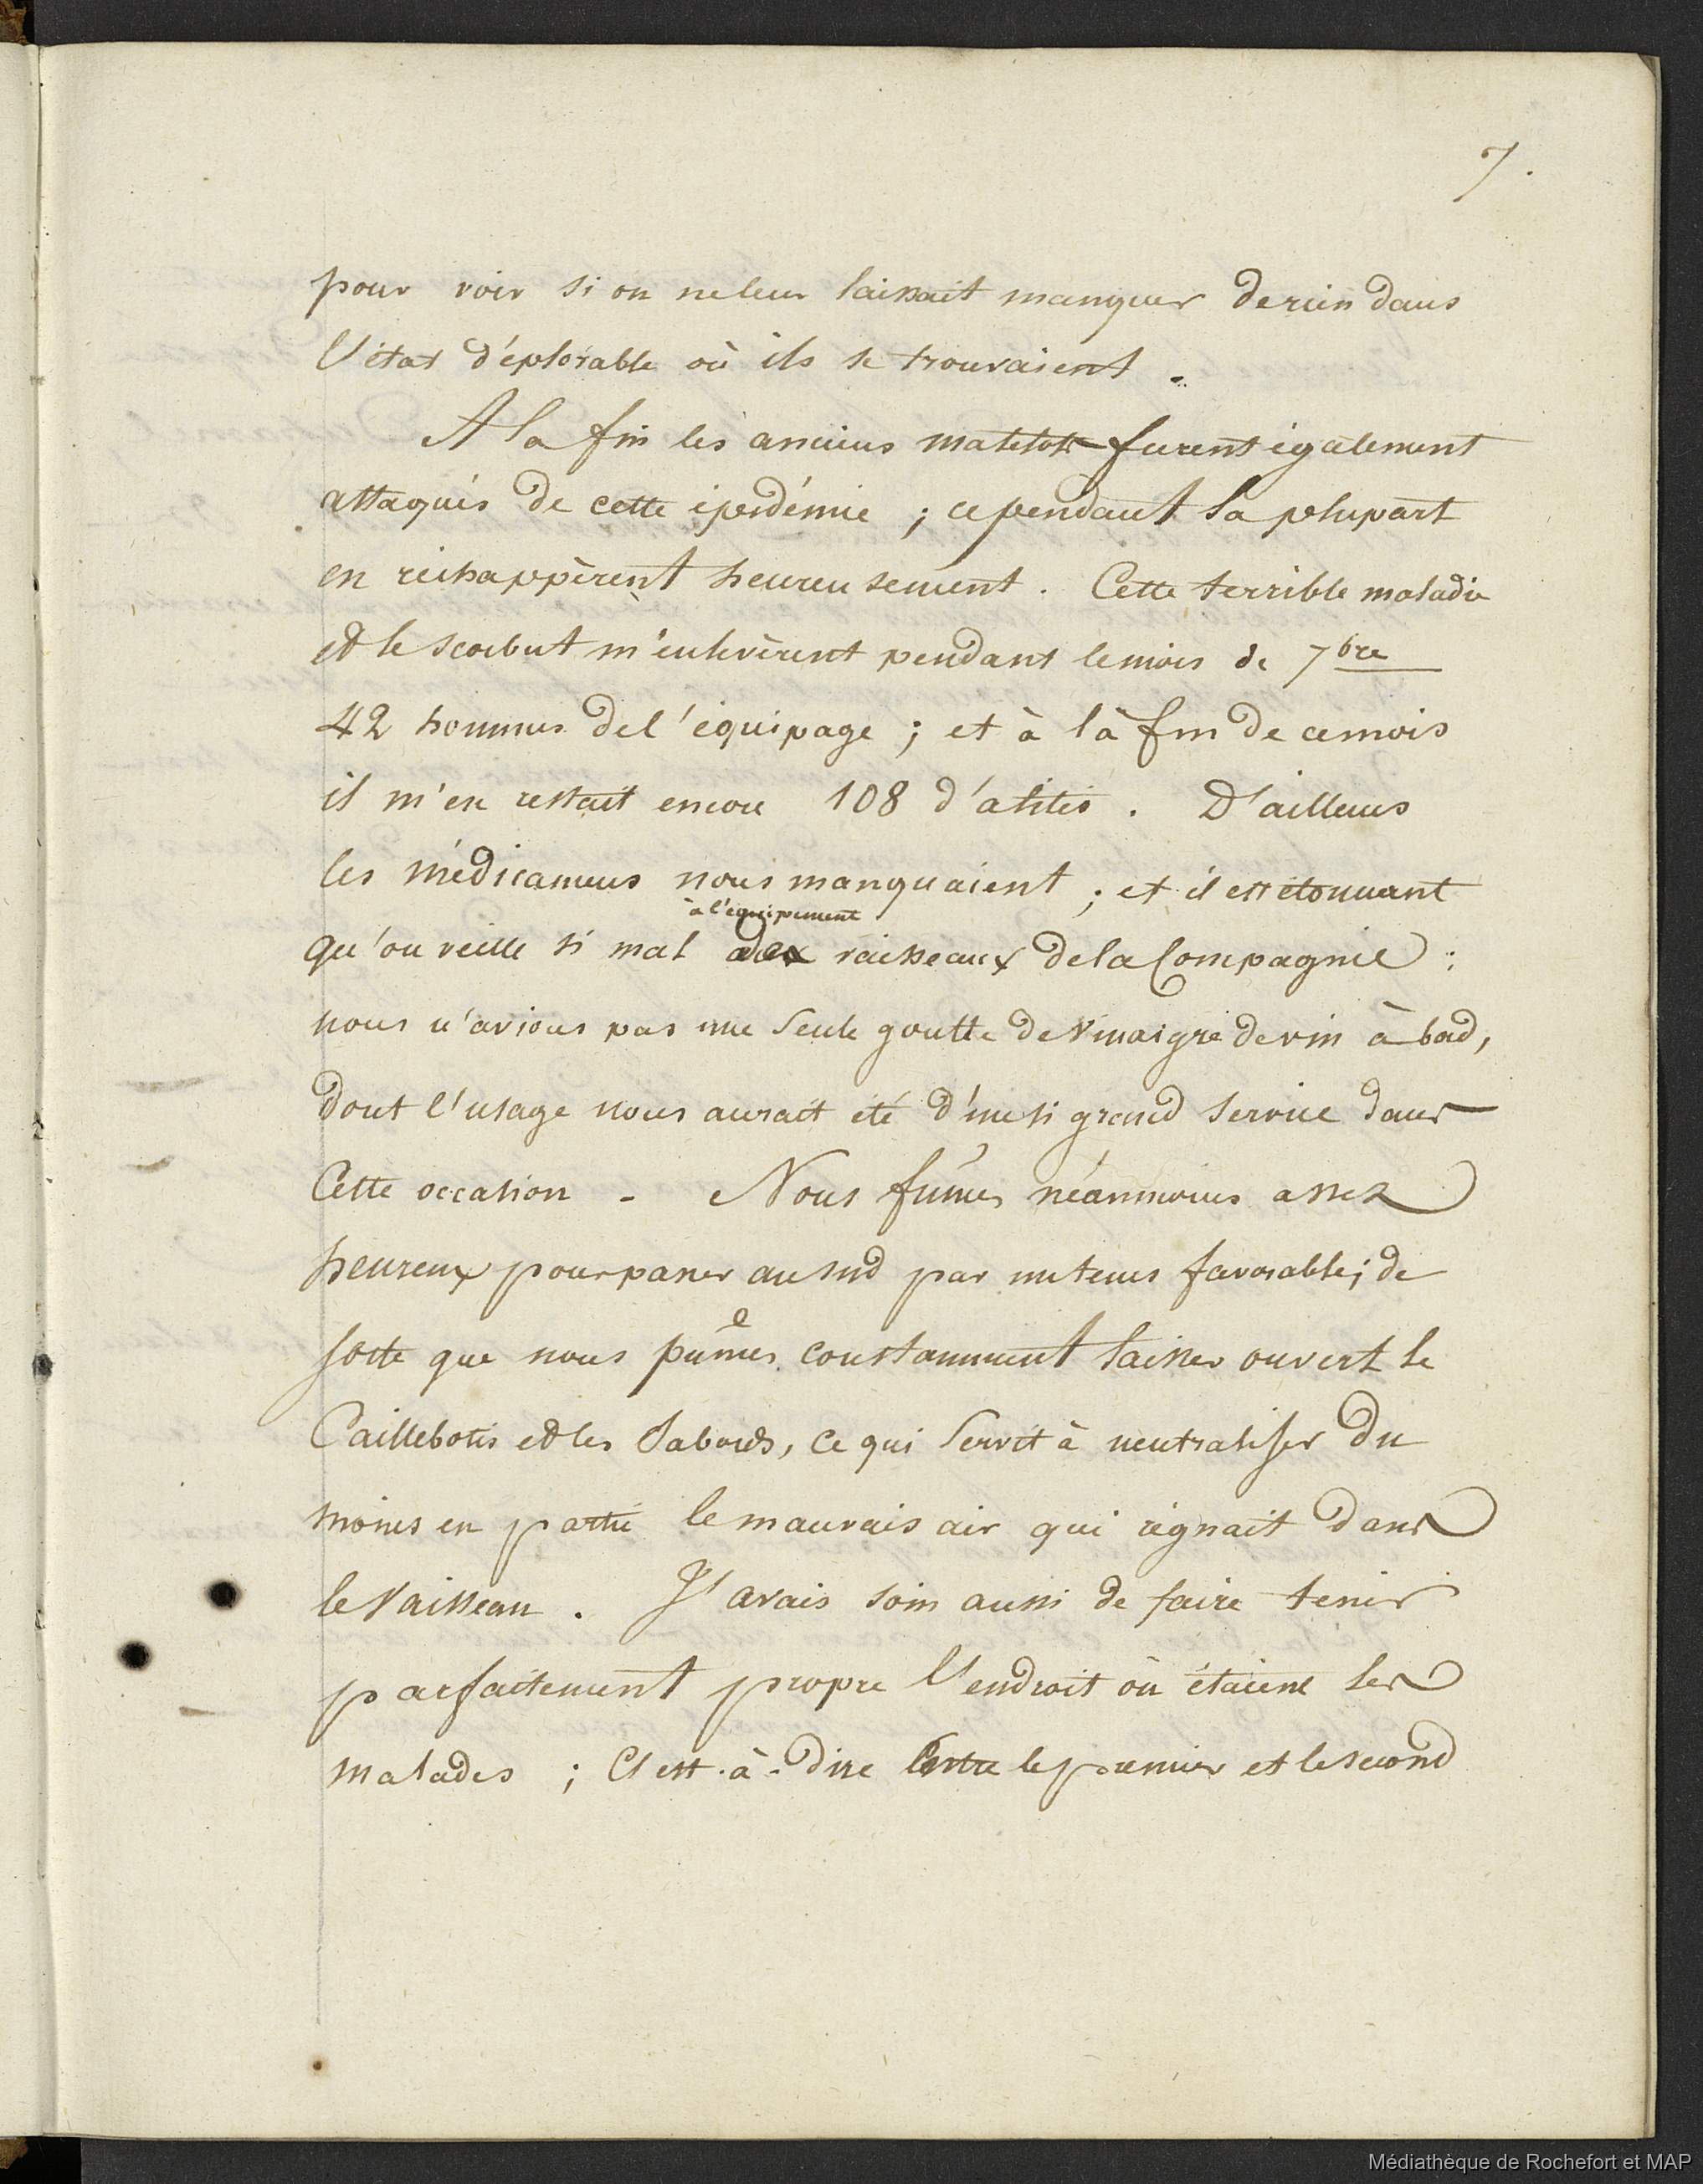 7.
pour voir si on ne leur laissait manquer de rien dans
l'état d'éplorable où ils se trouvaient.
A la fin les anciens matelots furent également
attaqués de cette épidémie ; cependant la plupart
en réchappèrent heureusement. Cette terrible maladie
et le scorbut m'enlevèrent pendant le mois de 7bre
42 hommes de l'équipage ; et à là fin de ce mois
il m'en restait encore 108 d'alités. D'ailleurs
les médicamens nous manquaient ; et il est étonnant
à l'equipement
qu'on veille si mal des vaisseaux de la Compagnie :
nous n'avions pas une seule goutte de Vinaigre de vin à bord,
dont l'usage nous aurait été d'un si grand service dans
Cette occasion - Nous fûmes néanmoins assez
heureux pour passer au sud par un tems favorable ; de
sorte que nous pûmes constamment laisser ouvert le
Caillebotis et les Sabords, ce qui servit à neutraliser du
moins en partie le mauvais air qui régnait dans
le Vaisseau. J'avais soin aussi de faire tenir
parfaitement propre l'endroit où étaient les
malades ; C'est-à-dire Entre le premier et le second
Médiathèque de Rochefort et MAP